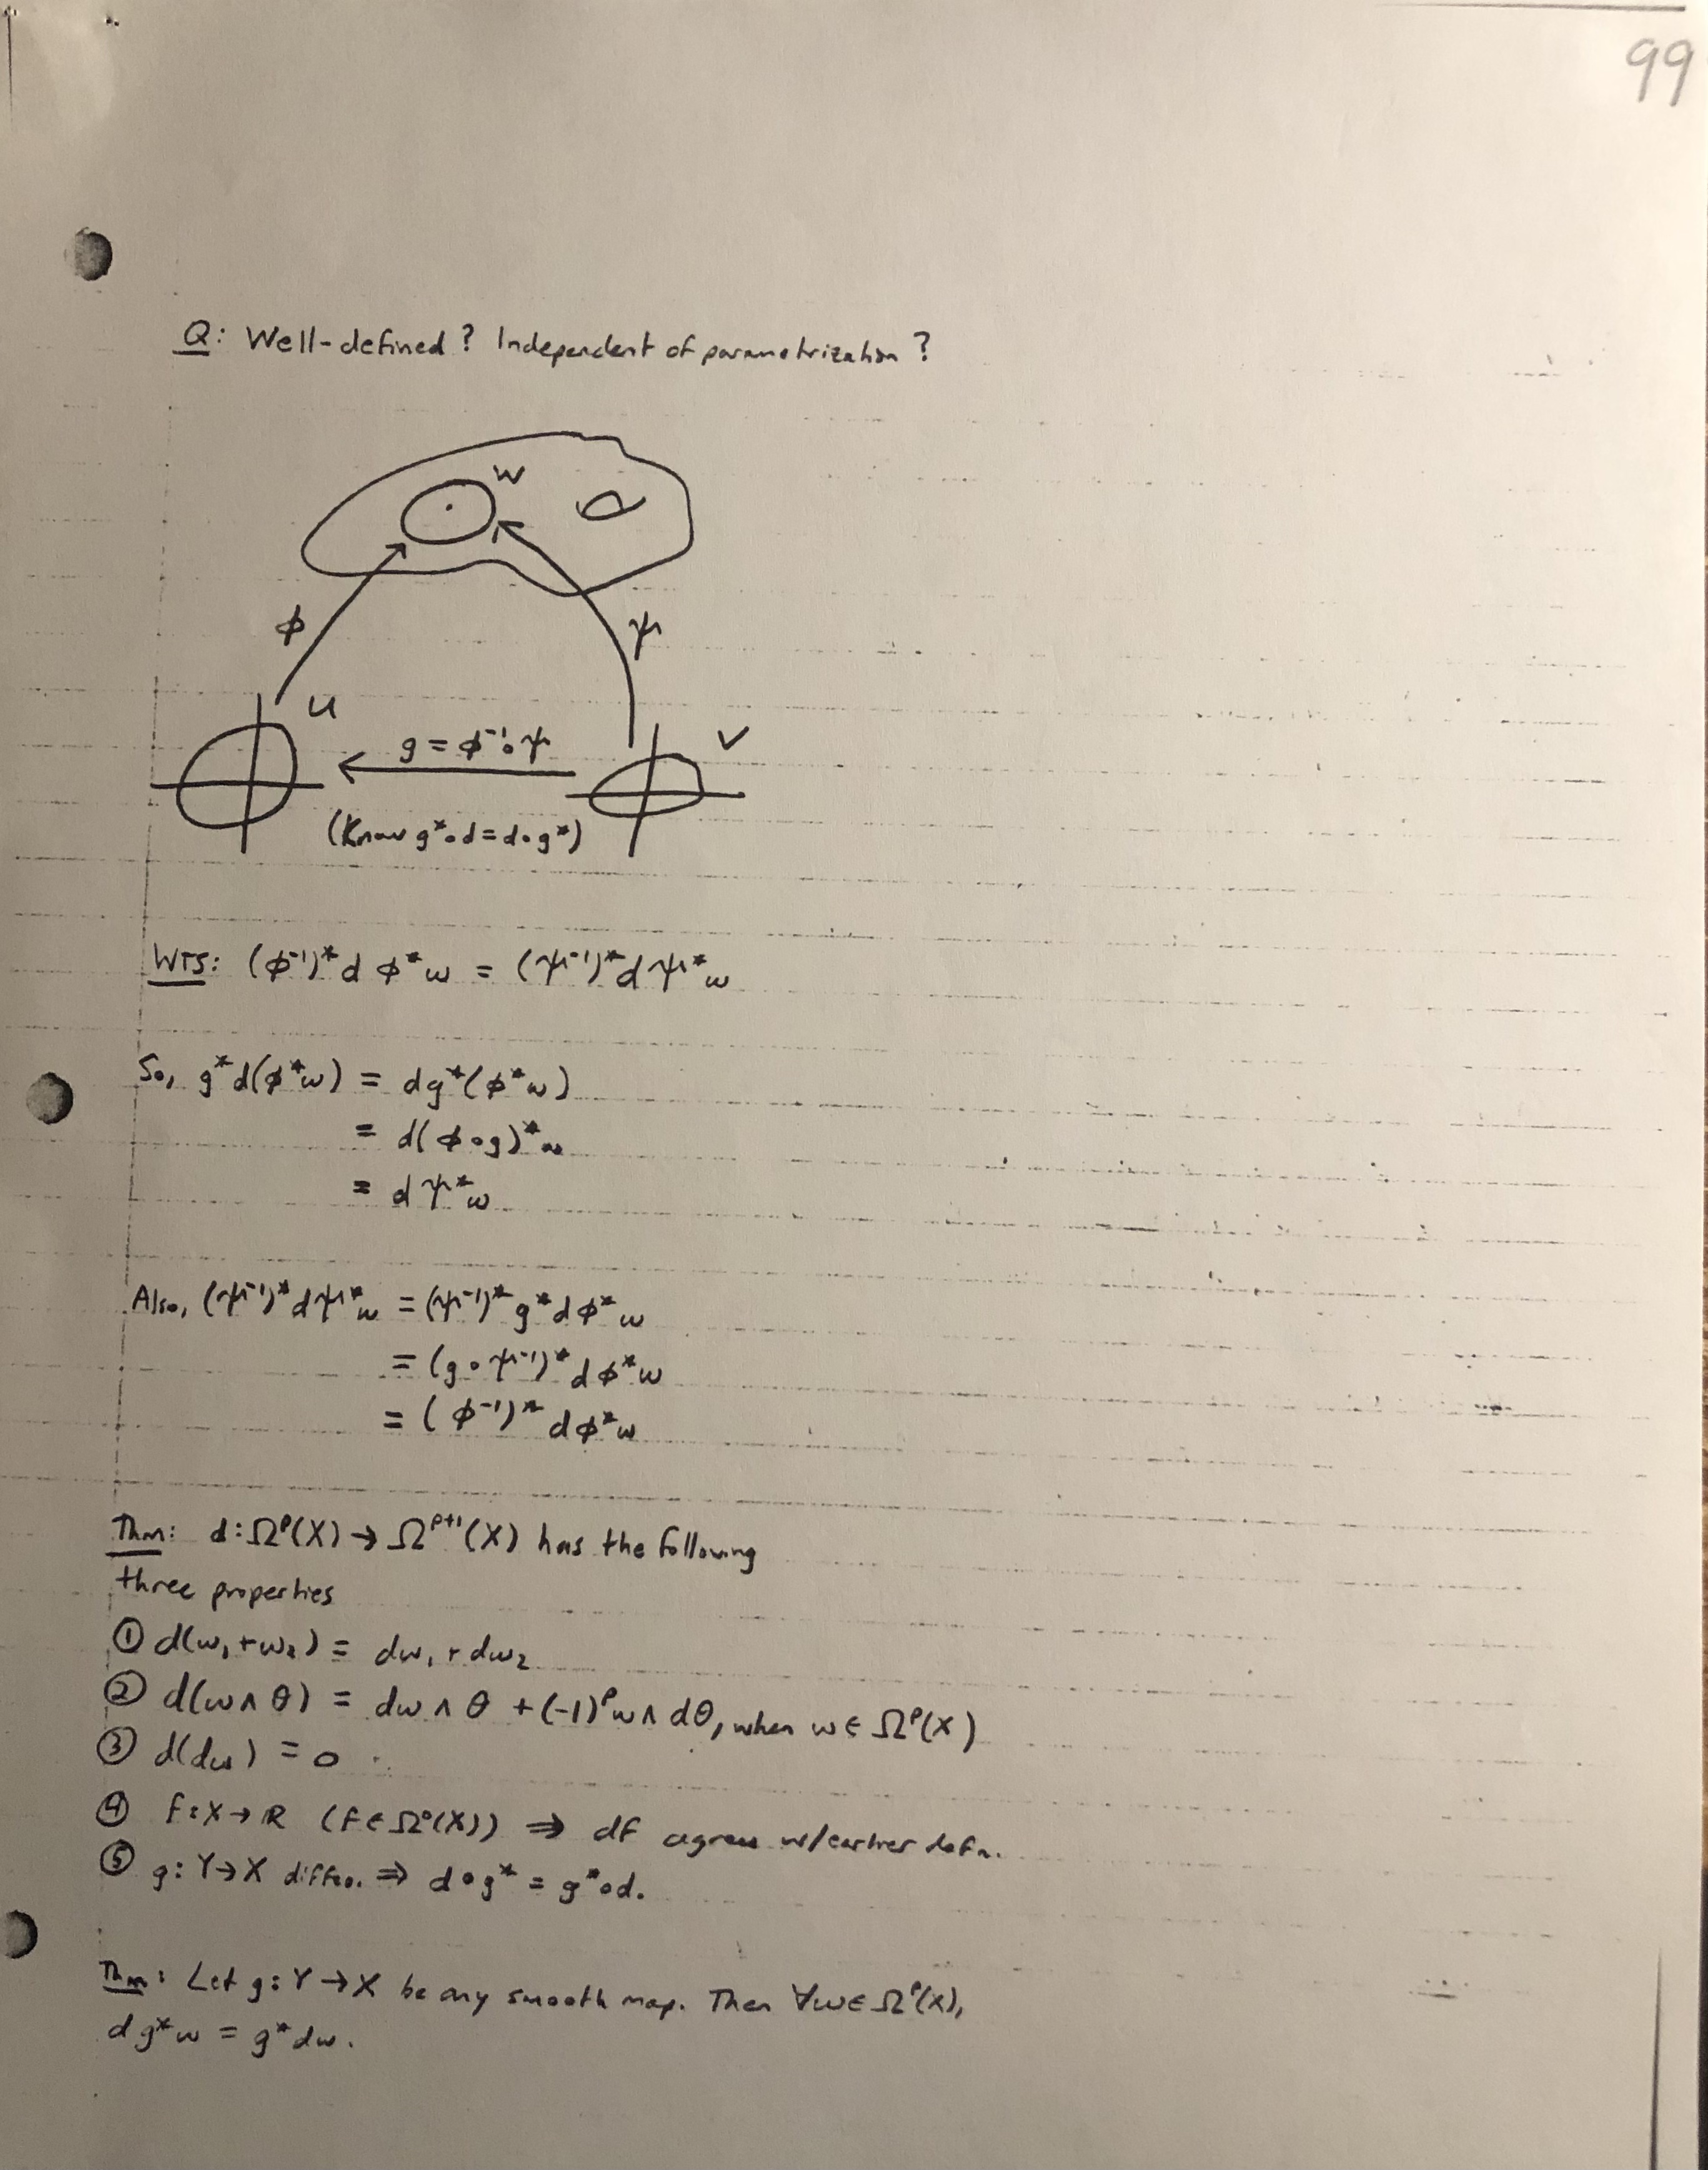 99
Q: Well-defined? Independent of parametrization?
W
ϕ
ψ
U
g = ϕ⁻¹∘ψ
V
(Know g*∘d = d∘g*)
WTS: (ϕ⁻¹)* d ϕ*ω = (ψ⁻¹)* d ψ*ω
So, g*d(ϕ*ω) = dg*(ϕ*ω)
= d(ϕ∘g)*ω
= dψ*ω
Also, (ψ⁻¹)*dψ*ω = (ψ⁻¹)* g*dϕ*ω
= (g∘ψ⁻¹)* dϕ*ω
= (ϕ⁻¹)* dϕ*ω
Thm: d: Ωᵖ(X) → Ωᵖ⁺¹(X) has the following
three properties
① d(ω₁+ω₂) = dω₁ + dω₂
② d(ω∧θ) = dω∧θ + (-1)ᵖω∧dθ, when ω∈Ωᵖ(X)
③ d(dω) = 0
④ f: X→ℝ (f∈Ω⁰(X)) ⇒ df agrees w/earlier defn.
⑤ g: Y→X diffeo. ⇒ d∘g* = g*∘d.
Thm: Let g: Y→X be any smooth map. Then ∀ω∈Ωᵖ(X),
dg*ω = g*dω.